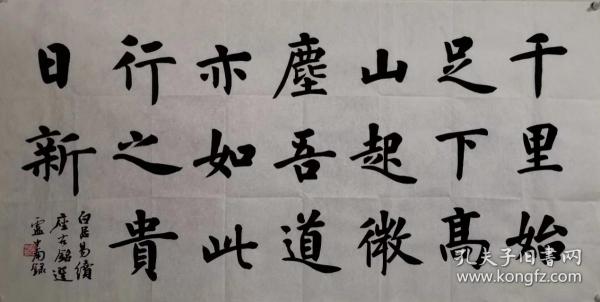 千里始
足下高
山起微
塵吾道
亦如此
行之貴
日新
白居易續
座右銘選
孔夫子旧书网
www.kongfz.com